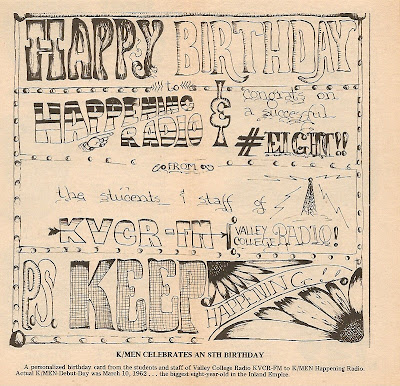 HAPPY BIRTHDAY
to
HAPPENING RADIO
&
congrats on
a successful
#EIGHT!!
FROM
the students & staff of
KVCR-FM
VALLEY COLLEGE RADIO!
P.S. KEEP HAPPENING
K/MEN CELEBRATES AN 8TH BIRTHDAY
A personalized birthday card from the students and staff of Valley College Radio KVCR-FM to K/MEN Happening Radio.
Actual K/MEN-Debut-Day was March 10, 1962 . . . the biggest eight-year-old in the Inland Empire.